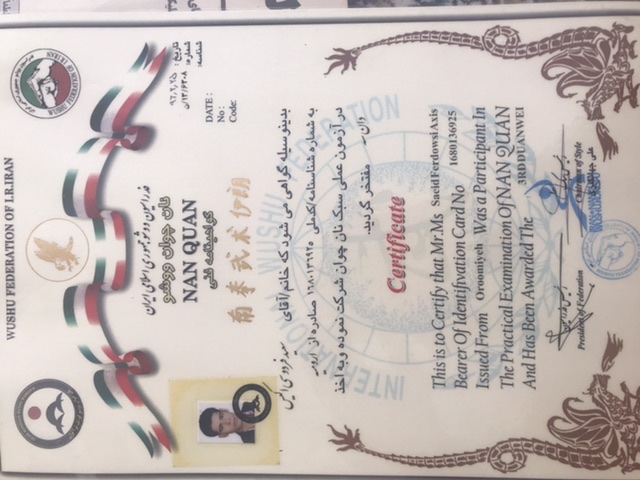 WUSHU FEDERATION OF I.R.IRAN
فدراسیون ووشو جمهوری اسلامی ایران
نان چوان ووشو
گواهینامه فنی
NAN QUAN
南拳武术伊朗
تاریخ: ۹۲,۲,۲۵
شماره: ۱۳/۶۳۰۸/ن
شناسه:
DATE :
No :
Code:
بدینوسیله گواهی می شود که خانم/آقای سعید فردوسی اکیس
به شماره شناسنامه/کدملی ۱۶۸۰۱۳۶۹۲۵ صادره از ارومیه
در آزمون عملی سبک نان چوان شرکت نموده و به اخذ
دان مفتخر گردید.
INTERNATIONAL WUSHU FEDERATION
Certificate
This is to Certify that Mr.Ms Saeid Ferdowsi Axis
Bearer Of Identifivation Card No 1680136925
Issued From Oroomiyeh Was a Participant In
The Practical Examination Of NAN QUAN
And Has Been Awarded The 3RD DUANWEI
President of Federation
Chairman of Style